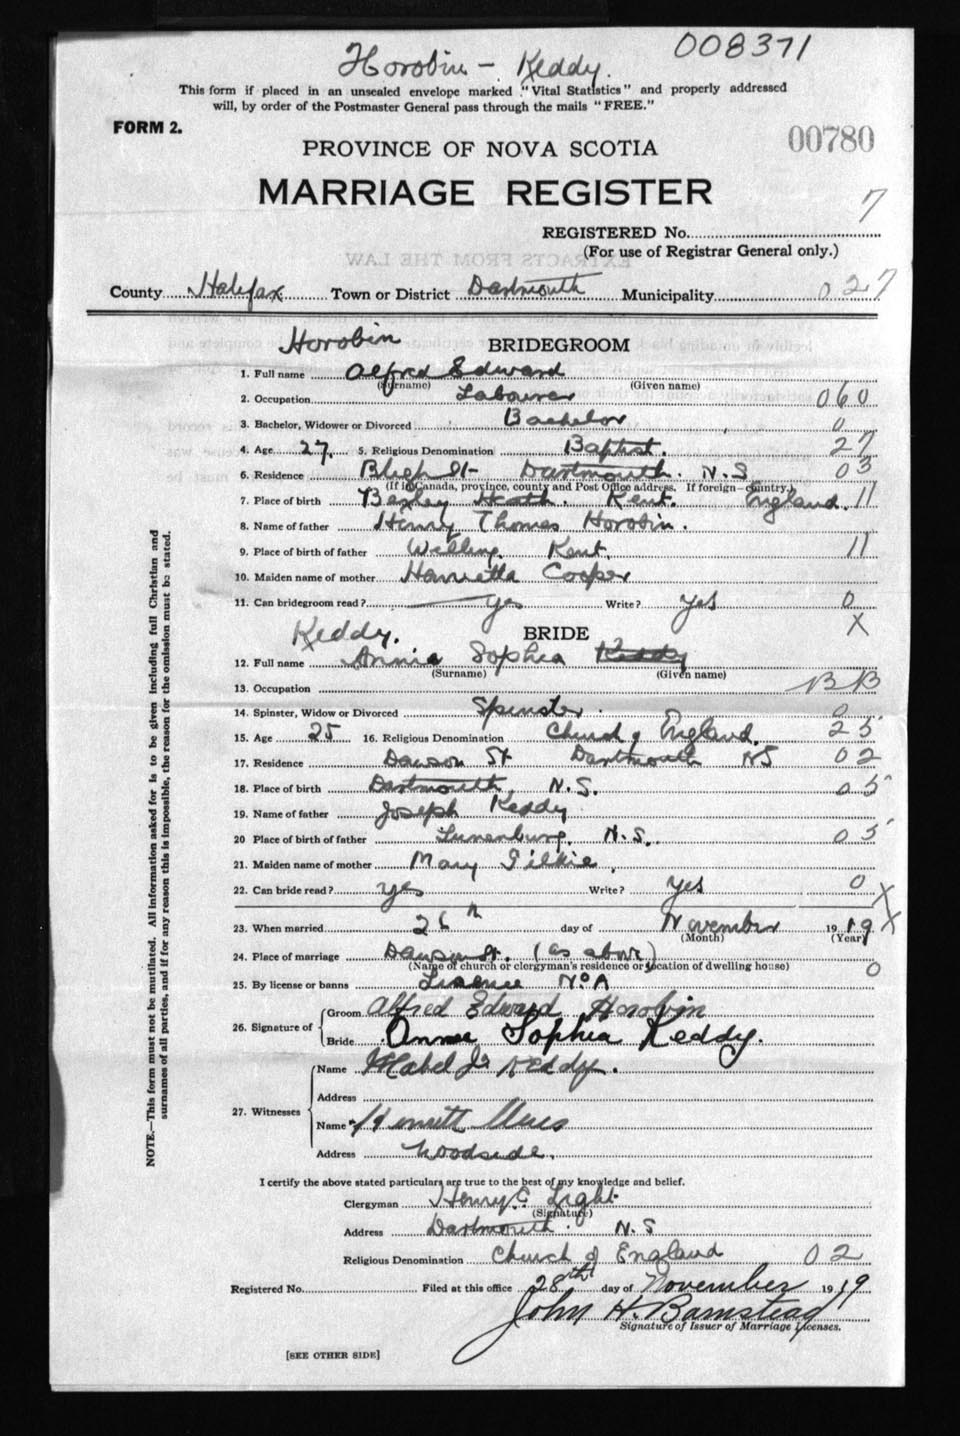 008371
Horobin - Keddy.
This form if placed in an unsealed envelope marked "Vital Statistics" and properly addressed
will, by order of the Postmaster General pass through the mails "FREE."
FORM 2.
00780
PROVINCE OF NOVA SCOTIA
MARRIAGE REGISTER
7
REGISTERED No.
(For use of Registrar General only.)
EXTRACTS FROM THE LAW
County Halifax Town or District Dartmouth Municipality 027
Horobin BRIDEGROOM
1. Full name Alfred Edward
(Surname) (Given name)
2. Occupation Labourer 060
3. Bachelor, Widower or Divorced Bachelor 0
4. Age 27. 5. Religious Denomination Baptist. 27
6. Residence Bligh St Dartmouth. N.S 03
(If in Canada, province, county and Post Office address. If foreign—country.)
7. Place of birth Bexley Heath. Kent. England. 11
8. Name of father Henry Thomas Horobin.
9. Place of birth of father Welling. Kent. 11
10. Maiden name of mother Henrietta Cooper
11. Can bridegroom read? yes Write? yes 0
X
Keddy. BRIDE
12. Full name Annie Sophia Keddy
(Surname) (Given name)
13. Occupation BB
14. Spinster, Widow or Divorced Spinster. 0
15. Age 25 16. Religious Denomination Church of England. 25
17. Residence Dawson St Dartmouth NS 02
18. Place of birth Dartmouth, N.S. 05
19. Name of father Joseph Keddy
20 Place of birth of father Lunenburg. N.S. 05
21. Maiden name of mother Mary Gilkie.
22. Can bride read? yes Write? yes 0 X
23. When married 26th day of November 1919 X
(Month) (Year)
24. Place of marriage Dawson St. (as above)
(Name of church or clergyman's residence or location of dwelling house) 0
25. By license or banns License No A
26. Signature of Groom Alfred Edward Horobin
Bride Annie Sophia Keddy.
27. Witnesses Name Mabel J. Keddy.
Address
Name
Address Woodside.
I certify the above stated particulars are true to the best of my knowledge and belief.
Clergyman Henry E. Light
(Signature)
Address Dartmouth. N.S
Religious Denomination Church of England 02
Registered No. Filed at this office 28th day of November 1919
John H. Bamstead
Signature of Issuer of Marriage Licenses.
[SEE OTHER SIDE]
NOTE.—This form must not be mutilated. All information asked for is to be given including full Christian and
surnames of all parties, and if for any reason this is impossible, the reason for the omission must be stated.